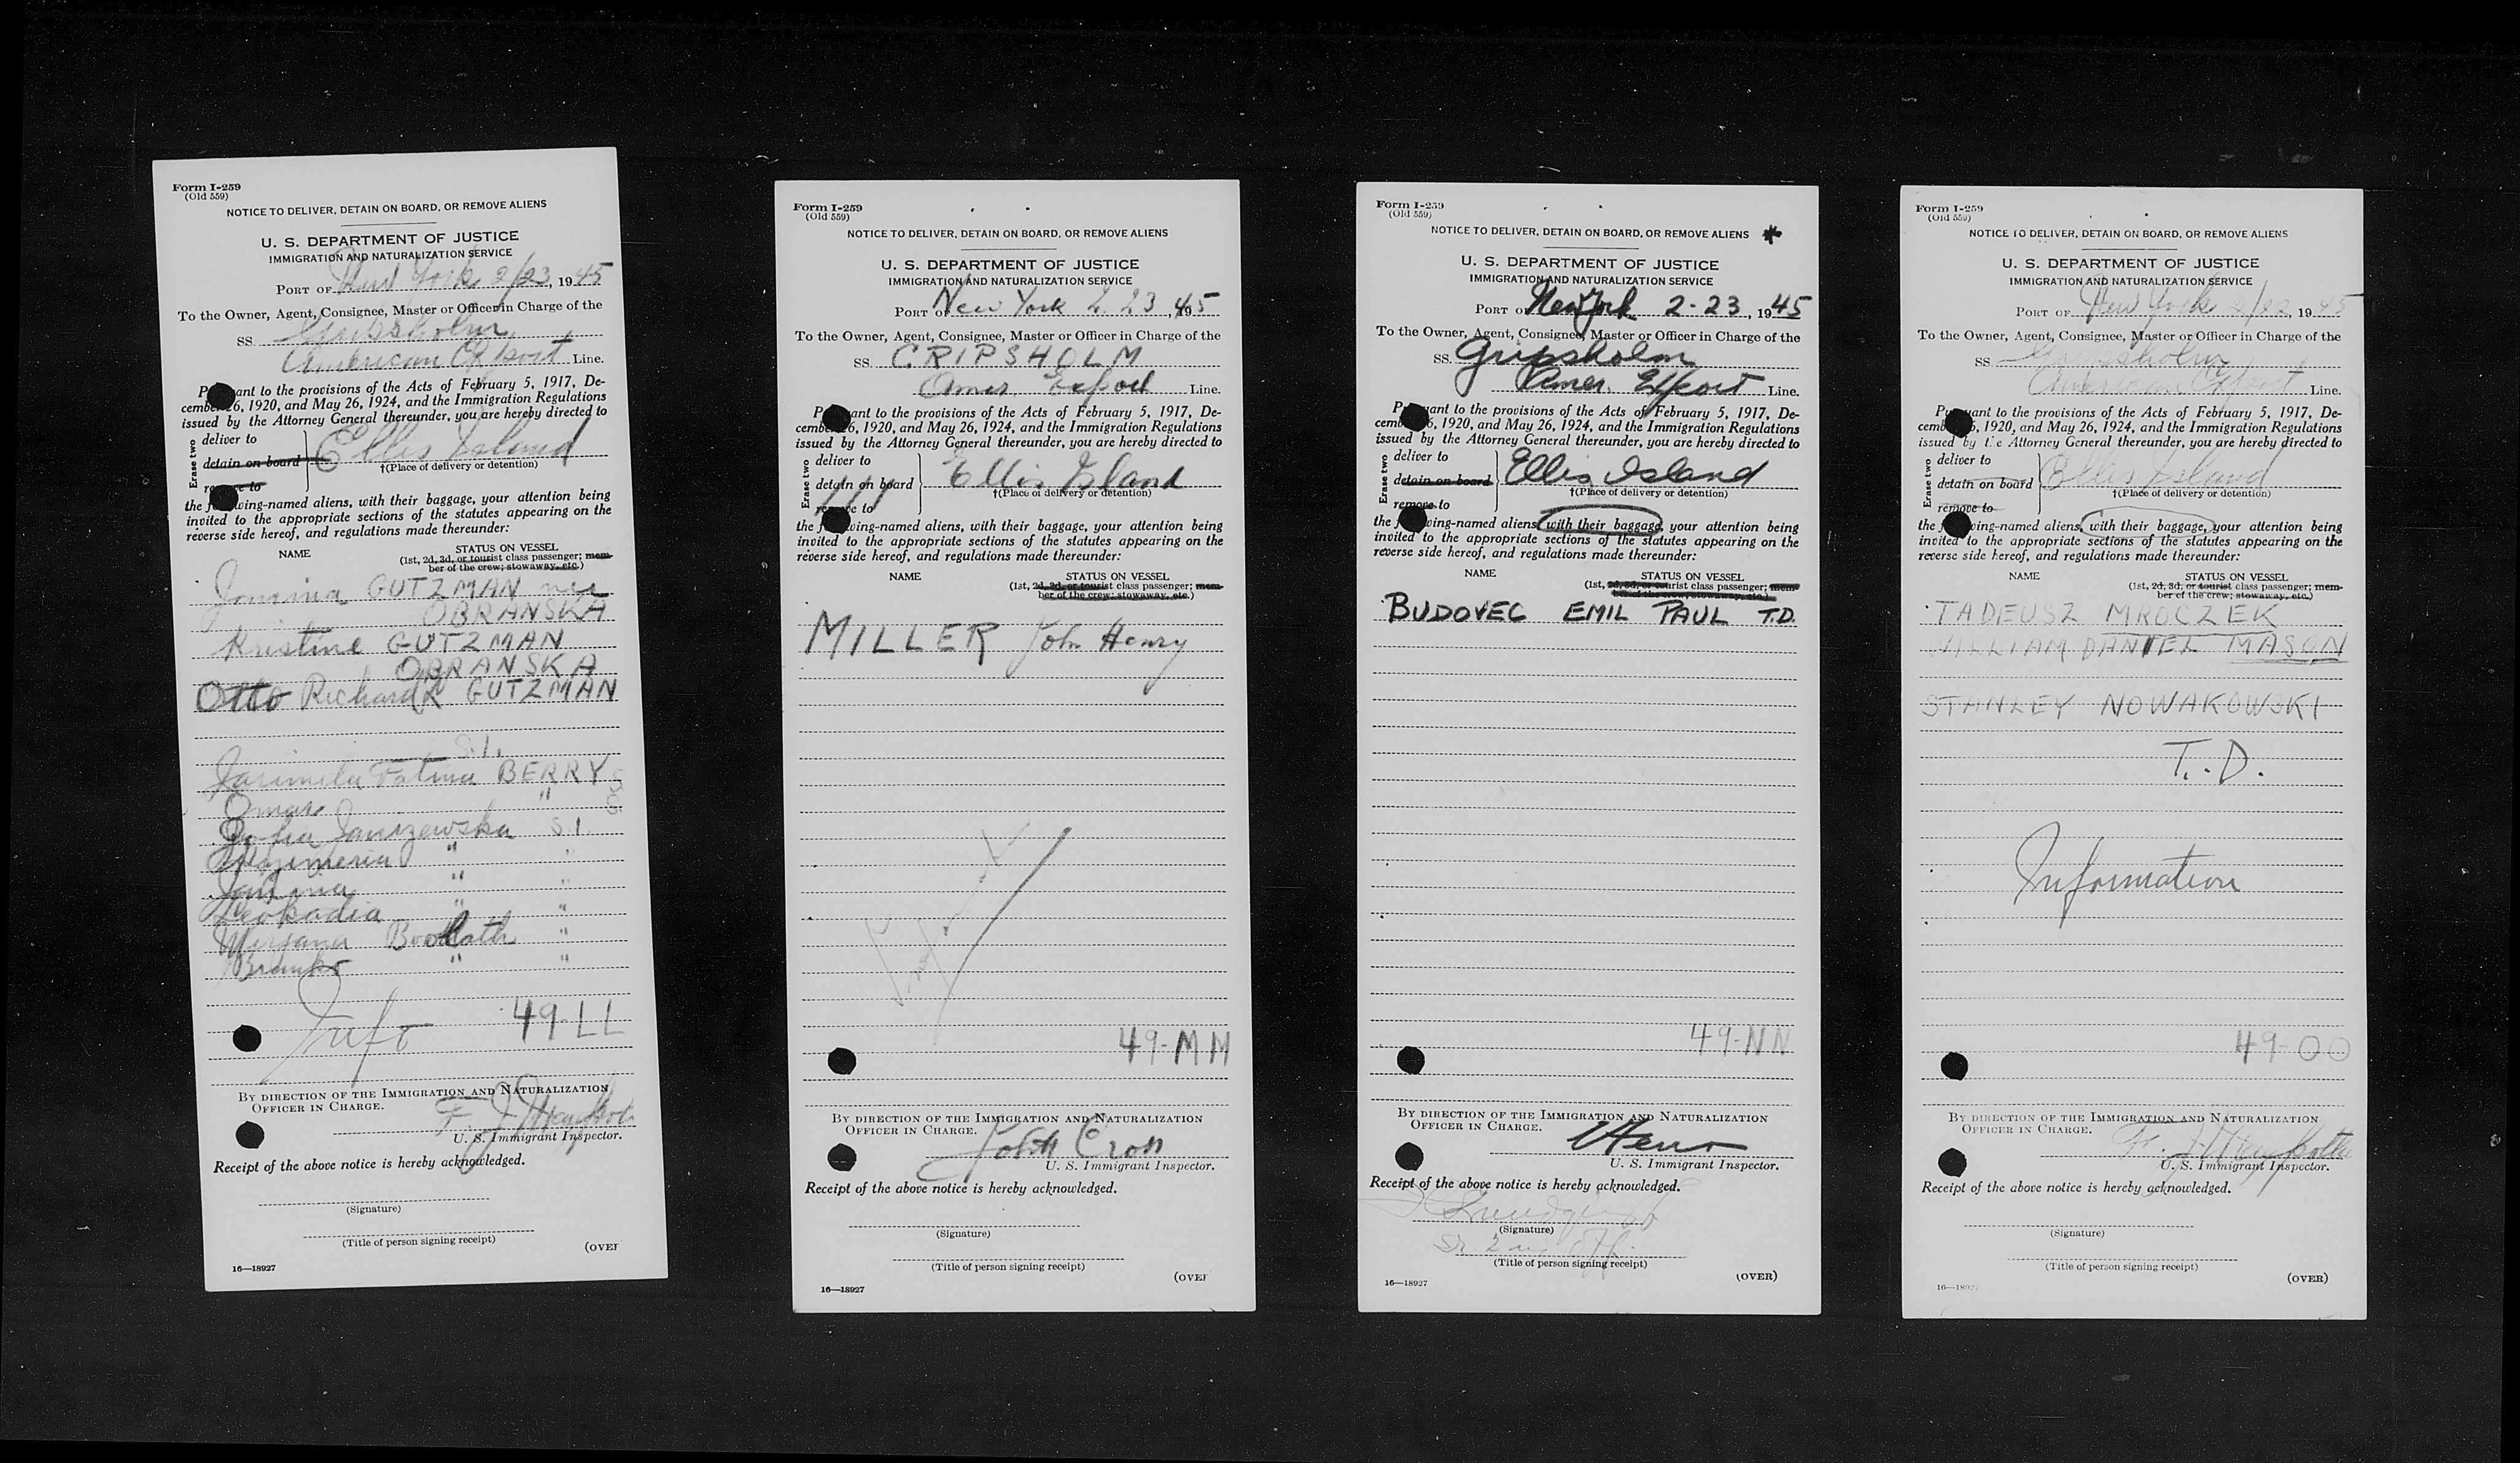 Form I-259
(Old 559)
NOTICE TO DELIVER, DETAIN ON BOARD, OR REMOVE ALIENS
U. S. DEPARTMENT OF JUSTICE
IMMIGRATION AND NATURALIZATION SERVICE
PORT OF New York 2/23, 1945
To the Owner, Agent, Consignee, Master or Officer in Charge of the
SS Gripsholm
American Export Line.
Pursuant to the provisions of the Acts of February 5, 1917, De-
cember 26, 1920, and May 26, 1924, and the Immigration Regulations
issued by the Attorney General thereunder, you are hereby directed to
Erase two
deliver to
detain on board
remove to
Ellis Island
†(Place of delivery or detention)
the following-named aliens, with their baggage, your attention being
invited to the appropriate sections of the statutes appearing on the
reverse side hereof, and regulations made thereunder:
NAME STATUS ON VESSEL
(1st, 2d, 3d, or tourist class passenger; mem-
ber of the crew; stowaway, etc.)
GUTZMAN nee
OBRANSKA
Kristine GUTZMAN
OBRANSKA
Otto Richard GUTZMAN
S.I.
Fatima BERRY
Omar "
Zofia Janiszewska S.I.
" "
Janina " "
Leokadia " "
Mirjana "
Branko " "
Info 49-LL
BY DIRECTION OF THE IMMIGRATION AND NATURALIZATION
OFFICER IN CHARGE.
F. J.
U. S. Immigrant Inspector.
Receipt of the above notice is hereby acknowledged.
(Signature)
(Title of person signing receipt)
(OVER
16—18927
Form I-259
(Old 559)
NOTICE TO DELIVER, DETAIN ON BOARD, OR REMOVE ALIENS
U. S. DEPARTMENT OF JUSTICE
IMMIGRATION AND NATURALIZATION SERVICE
PORT OF New York 2 23, 1945
To the Owner, Agent, Consignee, Master or Officer in Charge of the
SS. GRIPSHOLM
Amer Export Line.
Pursuant to the provisions of the Acts of February 5, 1917, De-
cember 26, 1920, and May 26, 1924, and the Immigration Regulations
issued by the Attorney General thereunder, you are hereby directed to
Erase two
deliver to
detain on board
remove to
Ellis Island
†(Place of delivery or detention)
the following-named aliens, with their baggage, your attention being
invited to the appropriate sections of the statutes appearing on the
reverse side hereof, and regulations made thereunder:
NAME STATUS ON VESSEL
(1st, 2d, 3d, or tourist class passenger; mem-
ber of the crew; stowaway, etc.)
MILLER John Henry
49-MM
BY DIRECTION OF THE IMMIGRATION AND NATURALIZATION
OFFICER IN CHARGE.
John Cron
U. S. Immigrant Inspector.
Receipt of the above notice is hereby acknowledged.
(Signature)
(Title of person signing receipt)
(OVER
16—18927
Form I-259
(Old 559)
NOTICE TO DELIVER, DETAIN ON BOARD, OR REMOVE ALIENS *
U. S. DEPARTMENT OF JUSTICE
IMMIGRATION AND NATURALIZATION SERVICE
PORT OF New York 2-23, 1945
To the Owner, Agent, Consignee, Master or Officer in Charge of the
SS. Gripsholm
Amer. Export Line.
Pursuant to the provisions of the Acts of February 5, 1917, De-
cember 26, 1920, and May 26, 1924, and the Immigration Regulations
issued by the Attorney General thereunder, you are hereby directed to
Erase two
deliver to
detain on board
remove to
Ellis Island
†(Place of delivery or detention)
the following-named aliens, with their baggage, your attention being
invited to the appropriate sections of the statutes appearing on the
reverse side hereof, and regulations made thereunder:
NAME STATUS ON VESSEL
(1st, 2d, 3d, or tourist class passenger; mem-
ber of the crew; stowaway, etc.)
BUDOVEC EMIL PAUL T.D.
49-NN
BY DIRECTION OF THE IMMIGRATION AND NATURALIZATION
OFFICER IN CHARGE.
U. S. Immigrant Inspector.
Receipt of the above notice is hereby acknowledged.
(Signature)
(Title of person signing receipt)
(OVER)
16—18927
Form I-259
(Old 559)
NOTICE TO DELIVER, DETAIN ON BOARD, OR REMOVE ALIENS
U. S. DEPARTMENT OF JUSTICE
IMMIGRATION AND NATURALIZATION SERVICE
PORT OF New York 2/22, 1945
To the Owner, Agent, Consignee, Master or Officer in Charge of the
SS Gripsholm
American Export Line.
Pursuant to the provisions of the Acts of February 5, 1917, De-
cember 26, 1920, and May 26, 1924, and the Immigration Regulations
issued by the Attorney General thereunder, you are hereby directed to
Erase two
deliver to
detain on board
remove to
Ellis Island
†(Place of delivery or detention)
the following-named aliens, with their baggage, your attention being
invited to the appropriate sections of the statutes appearing on the
reverse side hereof, and regulations made thereunder:
NAME STATUS ON VESSEL
(1st, 2d, 3d, or tourist class passenger; mem-
ber of the crew; stowaway, etc.)
TADEUSZ MROCZEK
WILLIAM DANIEL MASON
STANLEY NOWAKOWSKI
T.D.
Information
49-OO
BY DIRECTION OF THE IMMIGRATION AND NATURALIZATION
OFFICER IN CHARGE.
U. S. Immigrant Inspector.
Receipt of the above notice is hereby acknowledged.
(Signature)
(Title of person signing receipt)
(OVER)
16—18927